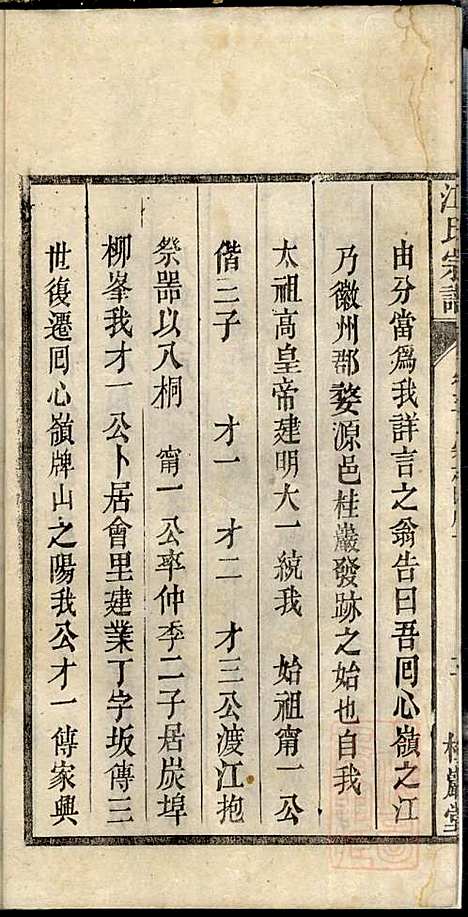 江氏宗譜
由分當爲我詳言之翁告曰吾囘心嶺之江
乃徽州郡婺源邑桂巖發跡之始也自我
太祖高皇帝建明大一統我 始祖甯一公
偕三子 才一 才二 才三公渡江抱
祭器以入桐 甯一公率仲季二子居炭埠
柳峯我才一公卜居會里建業丁字坂傳三
世復遷囘心嶺牌山之陽我公才一傳家興